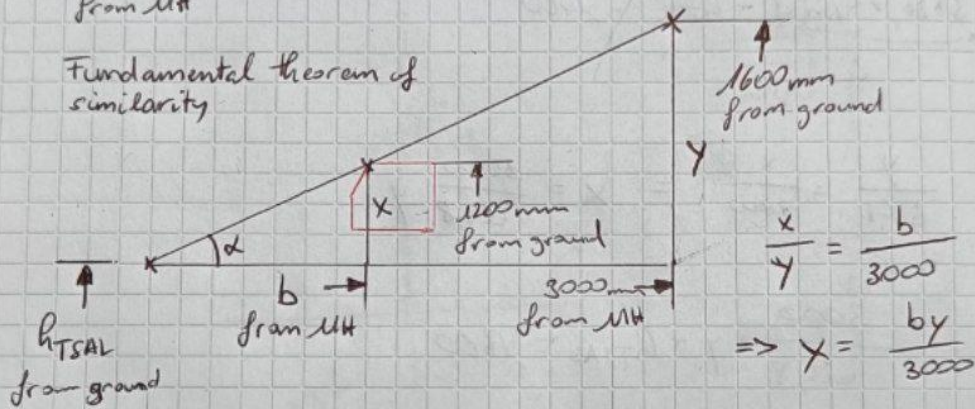 from MH
Fundamental theorem of
similarity
1600mm
from ground
y
x
1200mm
from ground
α
b
from MH
3000mm
from MH
hTSAL
from ground
x/y = b/3000
=> x = by/3000